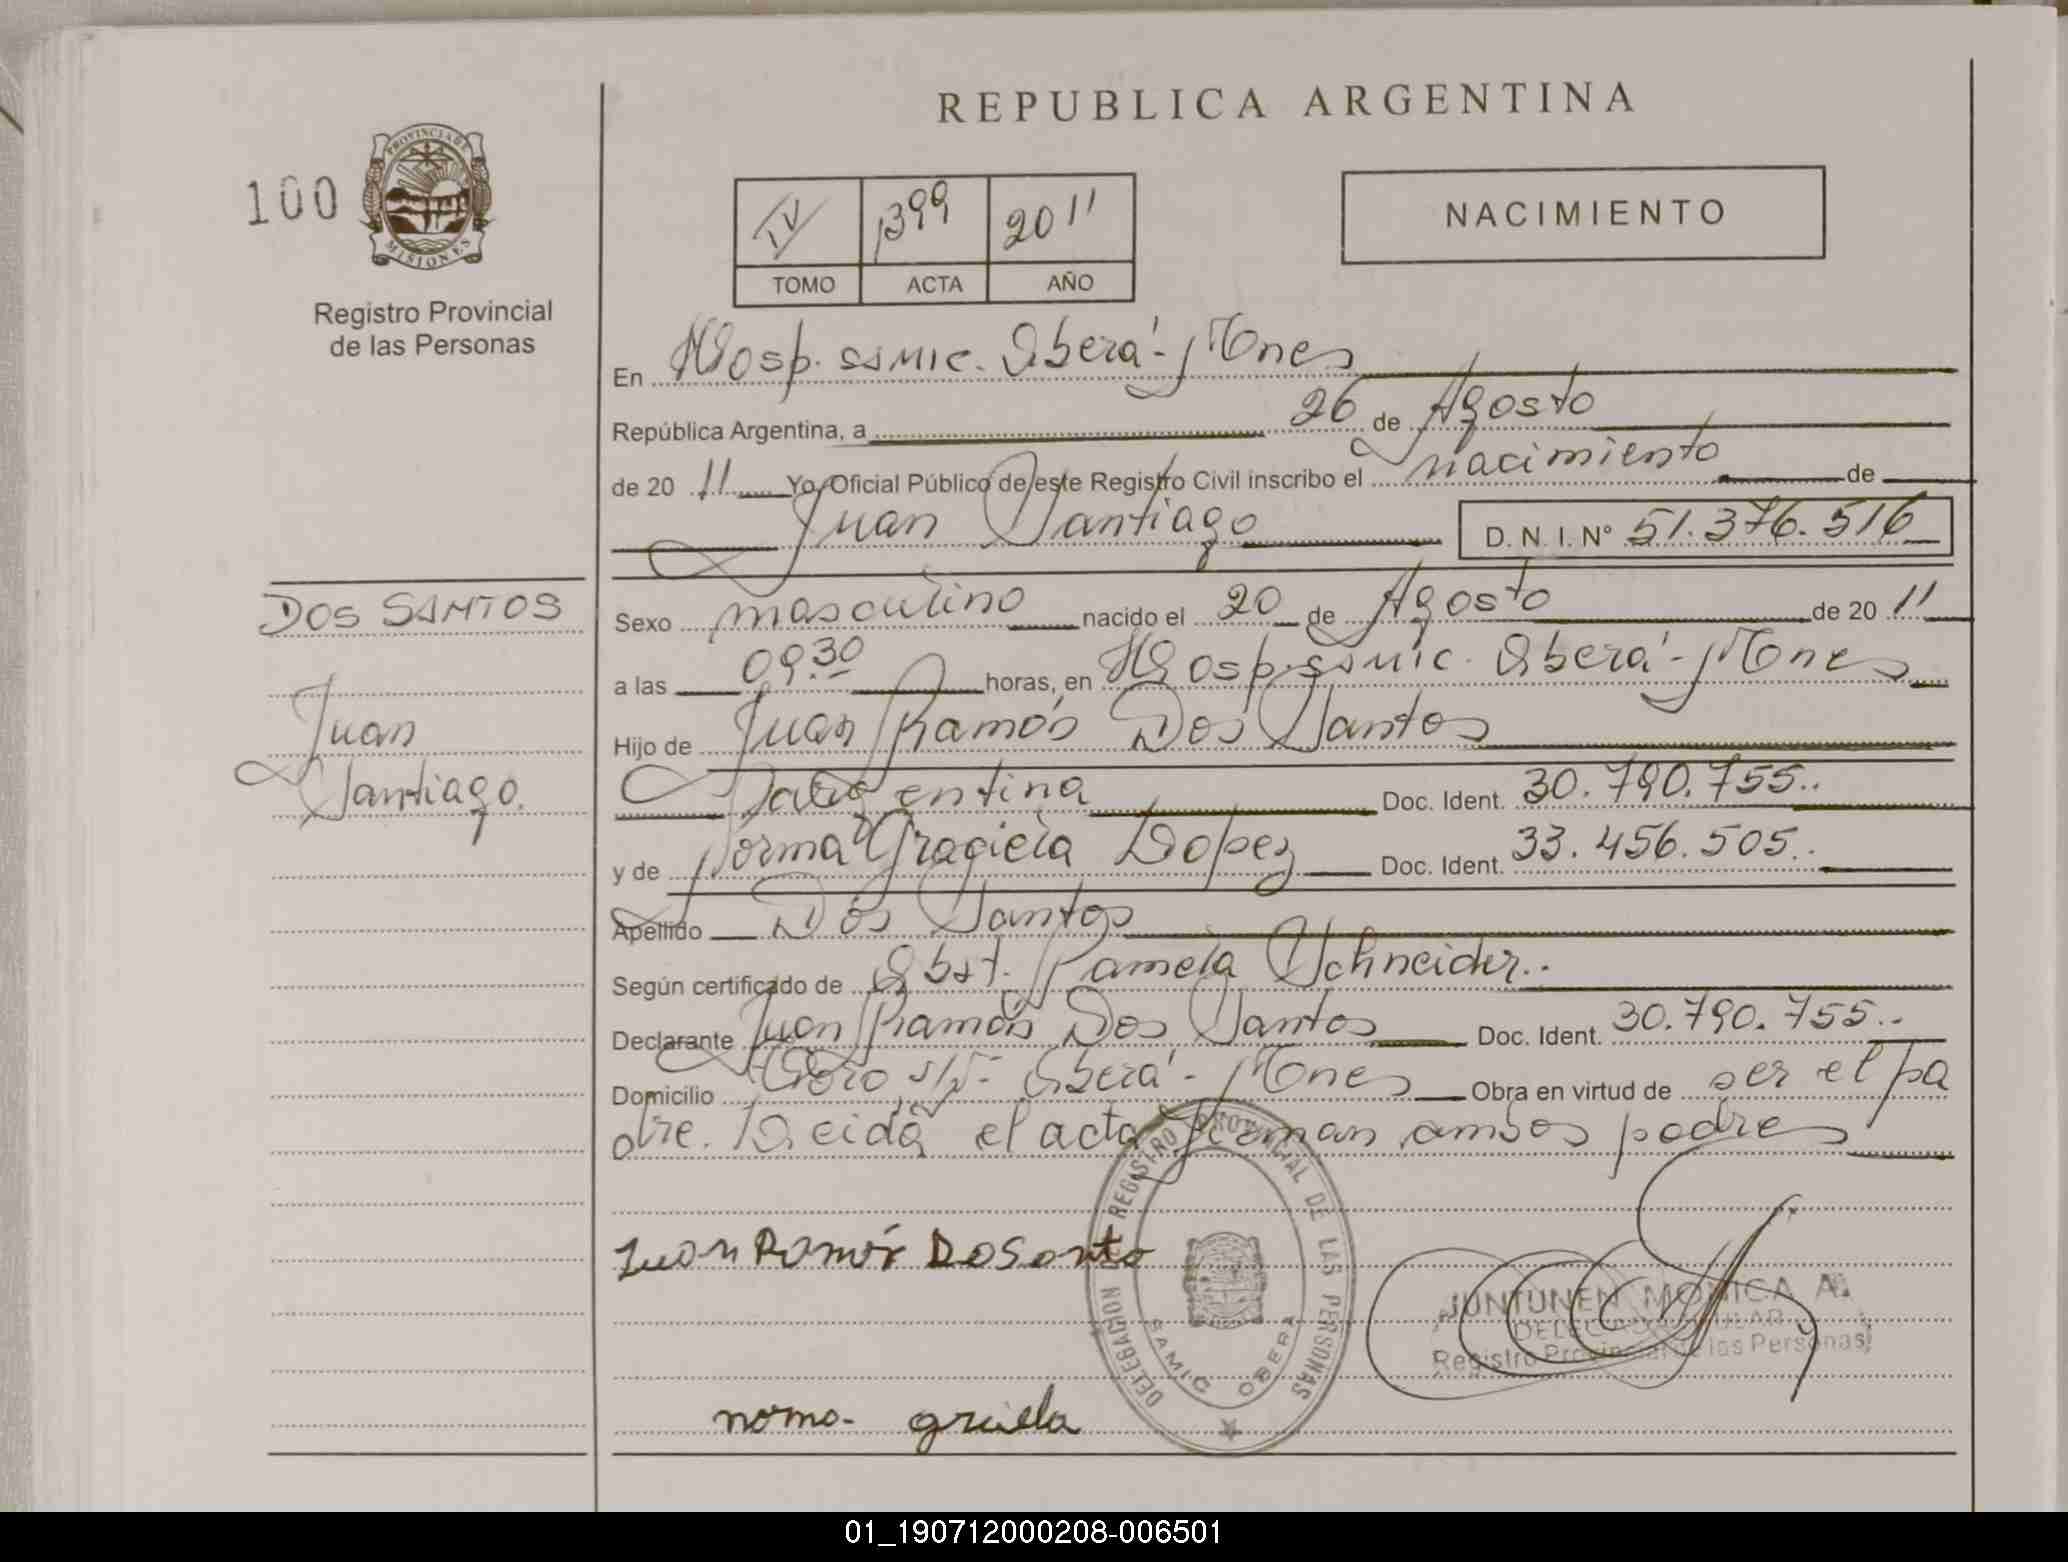 REPUBLICA ARGENTINA
100
PROVINCIA DE
MISIONES
Registro Provincial
de las Personas
IV 1399 2011
TOMO ACTA AÑO
NACIMIENTO
En Hosp. SAMIC. Oberá - Mnes
República Argentina, a 26 de Agosto
de 20 11 Yo, Oficial Público de este Registro Civil inscribo el nacimiento de
Juan Santiago D. N. I. Nº 51.376.516
DOS SANTOS
Juan
Santiago.
Sexo masculino nacido el 20 de Agosto de 20 11
a las 09.30 horas, en Hosp. SAMIC. Oberá - Mnes
Hijo de Juan Ramón Dos Santos
Argentina Doc. Ident. 30.790.755..
y de Norma Graciela Lopez Doc. Ident. 33.456.505..
Apellido Dos Santos
Según certificado de Obst. Pamela Schneider..
Declarante Juan Ramón Dos Santos Doc. Ident. 30.790.755..
Domicilio s/Nº - Oberá - Mnes Obra en virtud de ser el pa
dre. Leida el acta firman ambos padres
Juan Ramón DoSanto
norma graiela
DELEGACION REGISTRO PROVINCIAL DE LAS PERSONAS
SAMIC OBERA
JUNTUNEN MONICA A.
DELEGADA TITULAR
Registro Provincial de las Personas
01_190712000208-006501